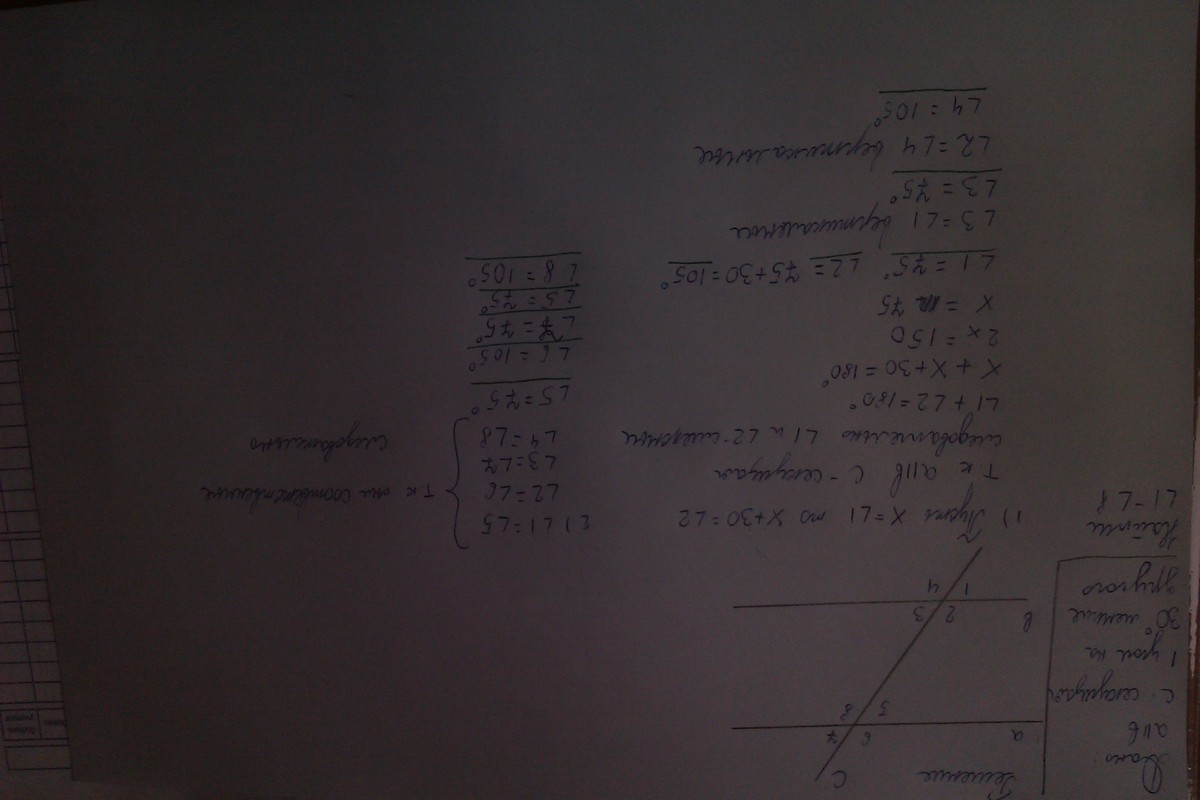 Дано:
a||b
c-секущая
1 угол на
30° меньше
другого
Найти
∠1-∠8
Решение
c
a
6 7
5 8
b
2 3
1 4
1) Пусть x=∠1 то x+30=∠2
Т.к a||b c-секущая
следовательно ∠1 и ∠2-смежные
∠1+∠2=180°
x+x+30=180°
2x=150
x=75
∠1=75° ∠2=75+30=105°
∠3=∠1 вертикальные
∠3=75°
∠2=∠4 вертикальные
∠4=105°
2) ∠1=∠5
∠2=∠6
∠3=∠7
∠4=∠8
т.к они соответственные
следовательно
∠5=75°
∠6=105°
∠7=75°
∠5=75°
∠8=105°